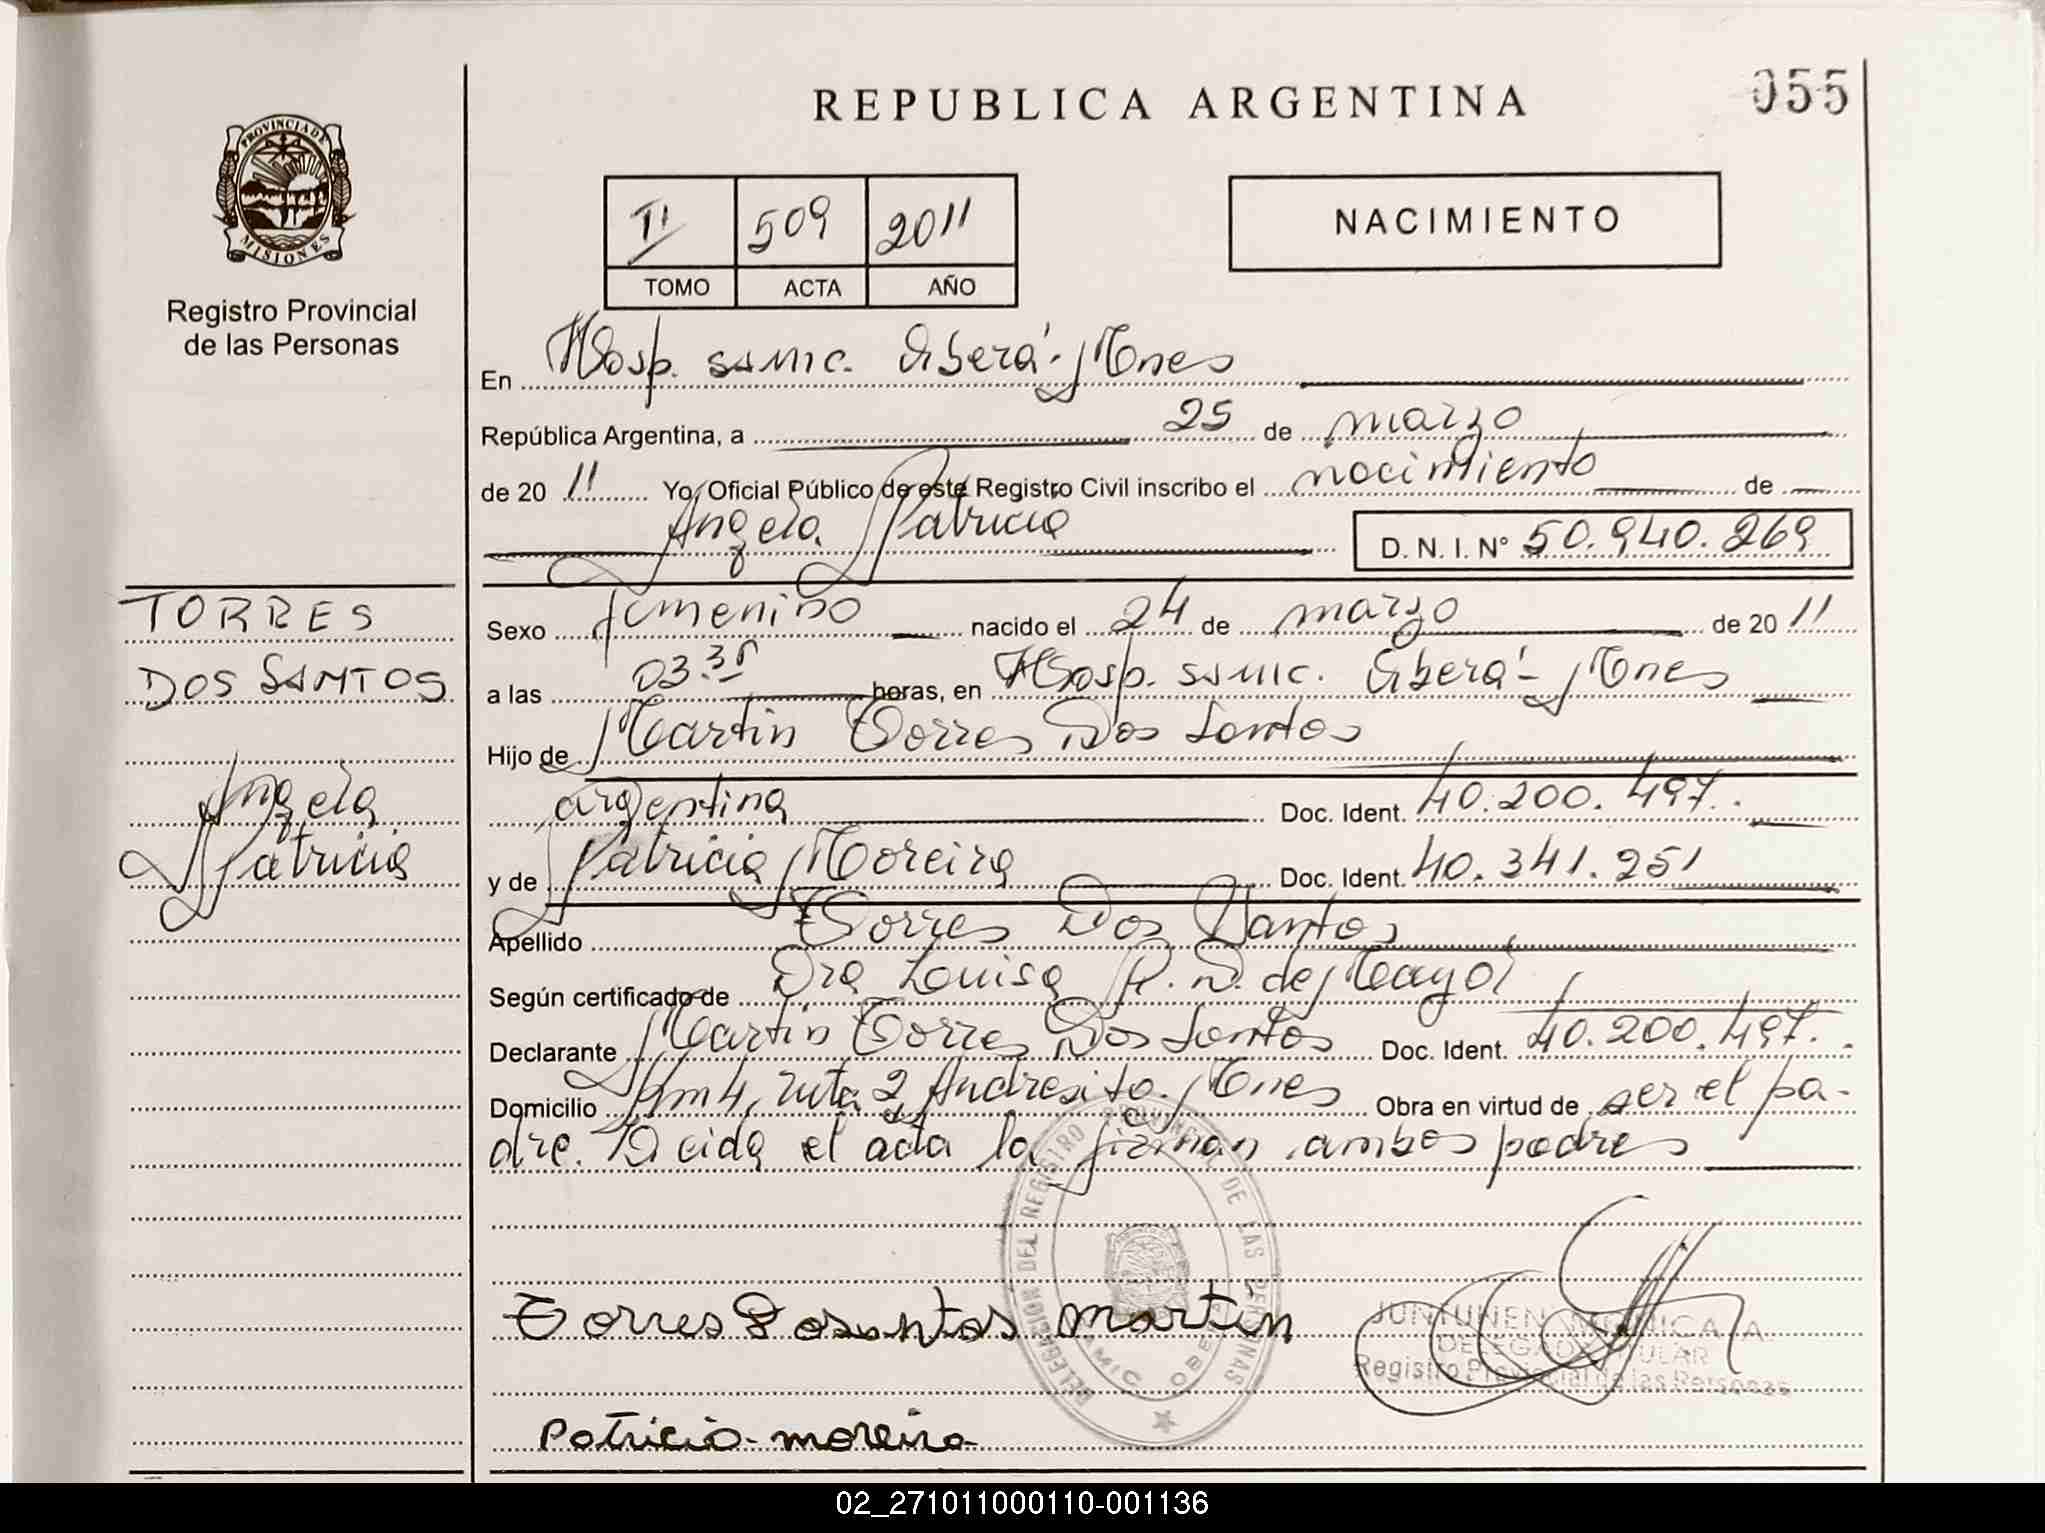 REPUBLICA ARGENTINA
055
PROVINCIA DE
MISIONES
Registro Provincial
de las Personas
II 509 2011
TOMO ACTA AÑO
NACIMIENTO
En Hosp. SAMIC. Oberá - Mnes
República Argentina, a 25 de marzo
de 20 11 Yo, Oficial Público de este Registro Civil inscribo el nacimiento de
Angela Patricia D. N. I. N° 50.940.269
TORRES
DOS SANTOS
Angela
Patricia
Sexo femenino nacido el 24 de marzo de 20 11
a las 03.35 horas, en Hosp. SAMIC. Oberá - Mnes
Hijo de Martin Torres Dos Santos
argentina Doc. Ident. 40.200.497.
y de Patricia Moreira Doc. Ident. 40.341.251
Apellido Torres Dos Santos
Según certificado de Dra Louisa R. N. de Mayol
Declarante Martin Torres Dos Santos Doc. Ident. 40.200.497.
Domicilio Km 4, ruta 2, Andresito. Mnes Obra en virtud de ser el pa-
dre. Leida el acta la firman ambos padres
DELEGACION DEL REGISTRO PROVINCIAL DE LAS PERSONAS
SAMIC OBERA
Torres Dosantos martin
JUNTUNEN MONICA A
DELEGADA TITULAR
Registro Provincial de las Personas
Patricia moreira
02_271011000110-001136